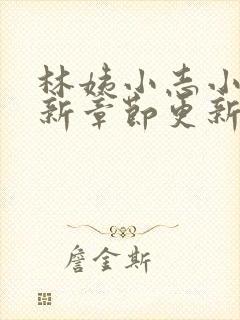 林姨小志小
新章节更新
詹金斯